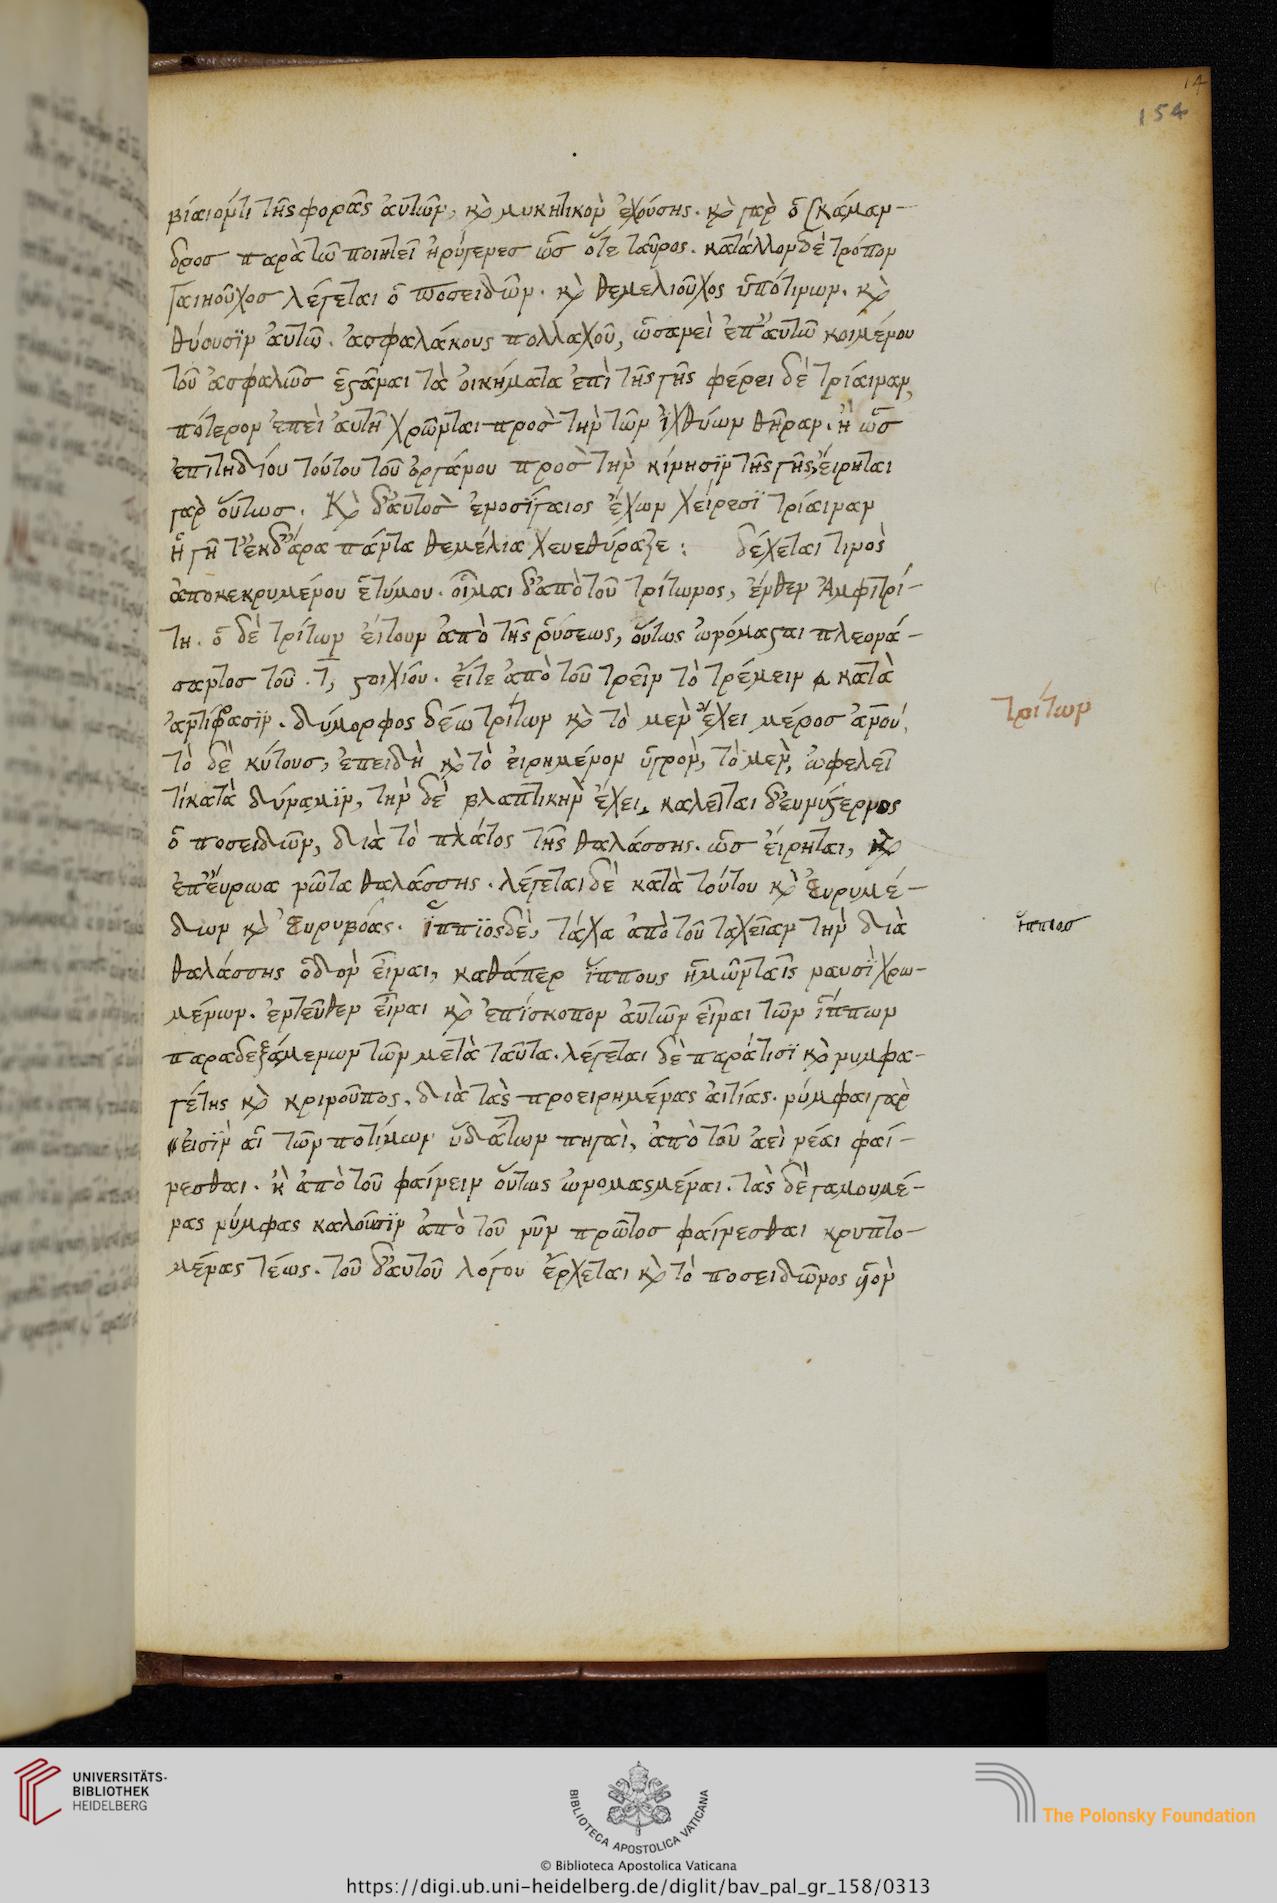 14
154
βίαιόν τι τῆς φορᾶς αὐτῶν, κὶ μυκητικὸν ἐχούσης. κὶ γὰρ ὁ Σκάμαν-
δρος παρὰ τῶ ποιητεῖ ἠρύγενεσ ὡσ ὅτε ταῦρος. κατάλλον δὲ τρόπον
Γαιηοῦχοσ λέγεται ὁ Ποσειδῶν. κὶ θεμελιοῦχος ὑπότινων. κὶ
θύουσϊν αὐτῶ. ἀσφαλάκους πολλαχοῦ, ὡσανεὶ ἐπ' αὐτῶ κοιμένου
τοῦ ἀσφαλῶσ ἑστᾶναι τὰ ὀικήματα ἐπὶ τῆς γῆς φέρει δὲ τρίαιναν,
πότερον ἐπεὶ ἀυτῆ χρῶνται προσ τὴν τῶν ἰχθύων θῆραν. ἢ ὡσ
ἐπιτηδίου τούτου τοῦ ὀργάνου προσ τὴν κίνησϊν τῆς γῆς, εἴρηται
γὰρ οὕτωσ. Κὶ δ'αυτοσ ἐνοσϊγαιος ἔχων χείρεσϊ τρίαιναν
ἡ γῆ τ'εκδ'άρα πάντα θεμέλια χευεθύραζε: δέχεται τινοσ
ἀποκεκρυμένου ἐτύμου. οἶμαι δ'απὸ τοῦ τρίτωνος, ἔνθεν Ἀμφιτρί-
τη. ὁ δὲ τρίτων εἴτουν ἀπὸ τῆς ῥύσεως, οὕτως ὠνόμασται πλεονά-
σαντοσ τοῦ . τ, στιχίου. εἴτε ἀπὸ τοῦ τρεῖν τὸ τρέμειν κατὰ
ἀντίφρασϊν. δύμορφος δέω τρίτων κὶ τὸ μεν ἔχει μέροσ ἀνου,
τὸ δὲ κύτουσ, ἐπειδὴ κὶ τὸ εἰρημένον ὑγρον, τὸ μεν, ὠφελεῖ
τίκατὰ δύναμϊν, τὴν δὲ βλαπτικὴν ἔχει, καλεῖται δ'ευρυστερνος
ὁ ποσειδῶν, διὰ τὸ πλάτος τῆς θαλάσσης. ὡσ εἴρηται, κὶ
ἐπ'εύρωα νῶτα θαλάσσης. λέγεται δὲ κατὰ τούτου κὶ Ἐυρυμέ-
διων κὶ Ἐυρυβόας. ἵππϊος δὲ, τάχα ἀπὸ τοῦ ταχεῖαν τὴν διὰ
θαλάσσης ὁδὸν εἶναι, καθάπερ ἵππους ἡμῶν ταῖς ναυσὶ χρω-
μένων. ἐντεῦθεν εἶναι κὶ ἐπίσκοπον ἀυτῶν εἶναι τῶν ἵππων
παραδεξάμενων τῶν μετὰ ταῦτα. λέγεται δὲ παράτισϊ κὶ νυμφα-
γέτης κὶ κρινοῦπος, διὰ τας προειρημένας ἀιτίας. νύμφαι γὰρ
εἰσϊν αἱ τῶν ποτίμων ὑδάτων πηγαὶ, ἀπὸ τοῦ ἀεὶ νέαι φαί-
νεσθαι. κ ἀπὸ τοῦ φαίνειν οὕτως ὠνομασμέναι. τας δὲ γαμουμέ-
νας νύμφας καλοῦσϊν ἀπὸ τοῦ νῦν πρῶτοσ φαίνεσθαι κρυπτο-
μένας τέως. τοῦ δ'αυτοῦ λόγου ἔρχεται κὶ τὸ ποσειδῶνος
Τρίτων
ἵππιοσ
UNIVERSITÄTS-
BIBLIOTHEK
HEIDELBERG
BIBLIOTECA APOSTOLICA VATICANA
The Polonsky Foundation
© Biblioteca Apostolica Vaticana
https://digi.ub.uni-heidelberg.de/diglit/bav_pal_gr_158/0313